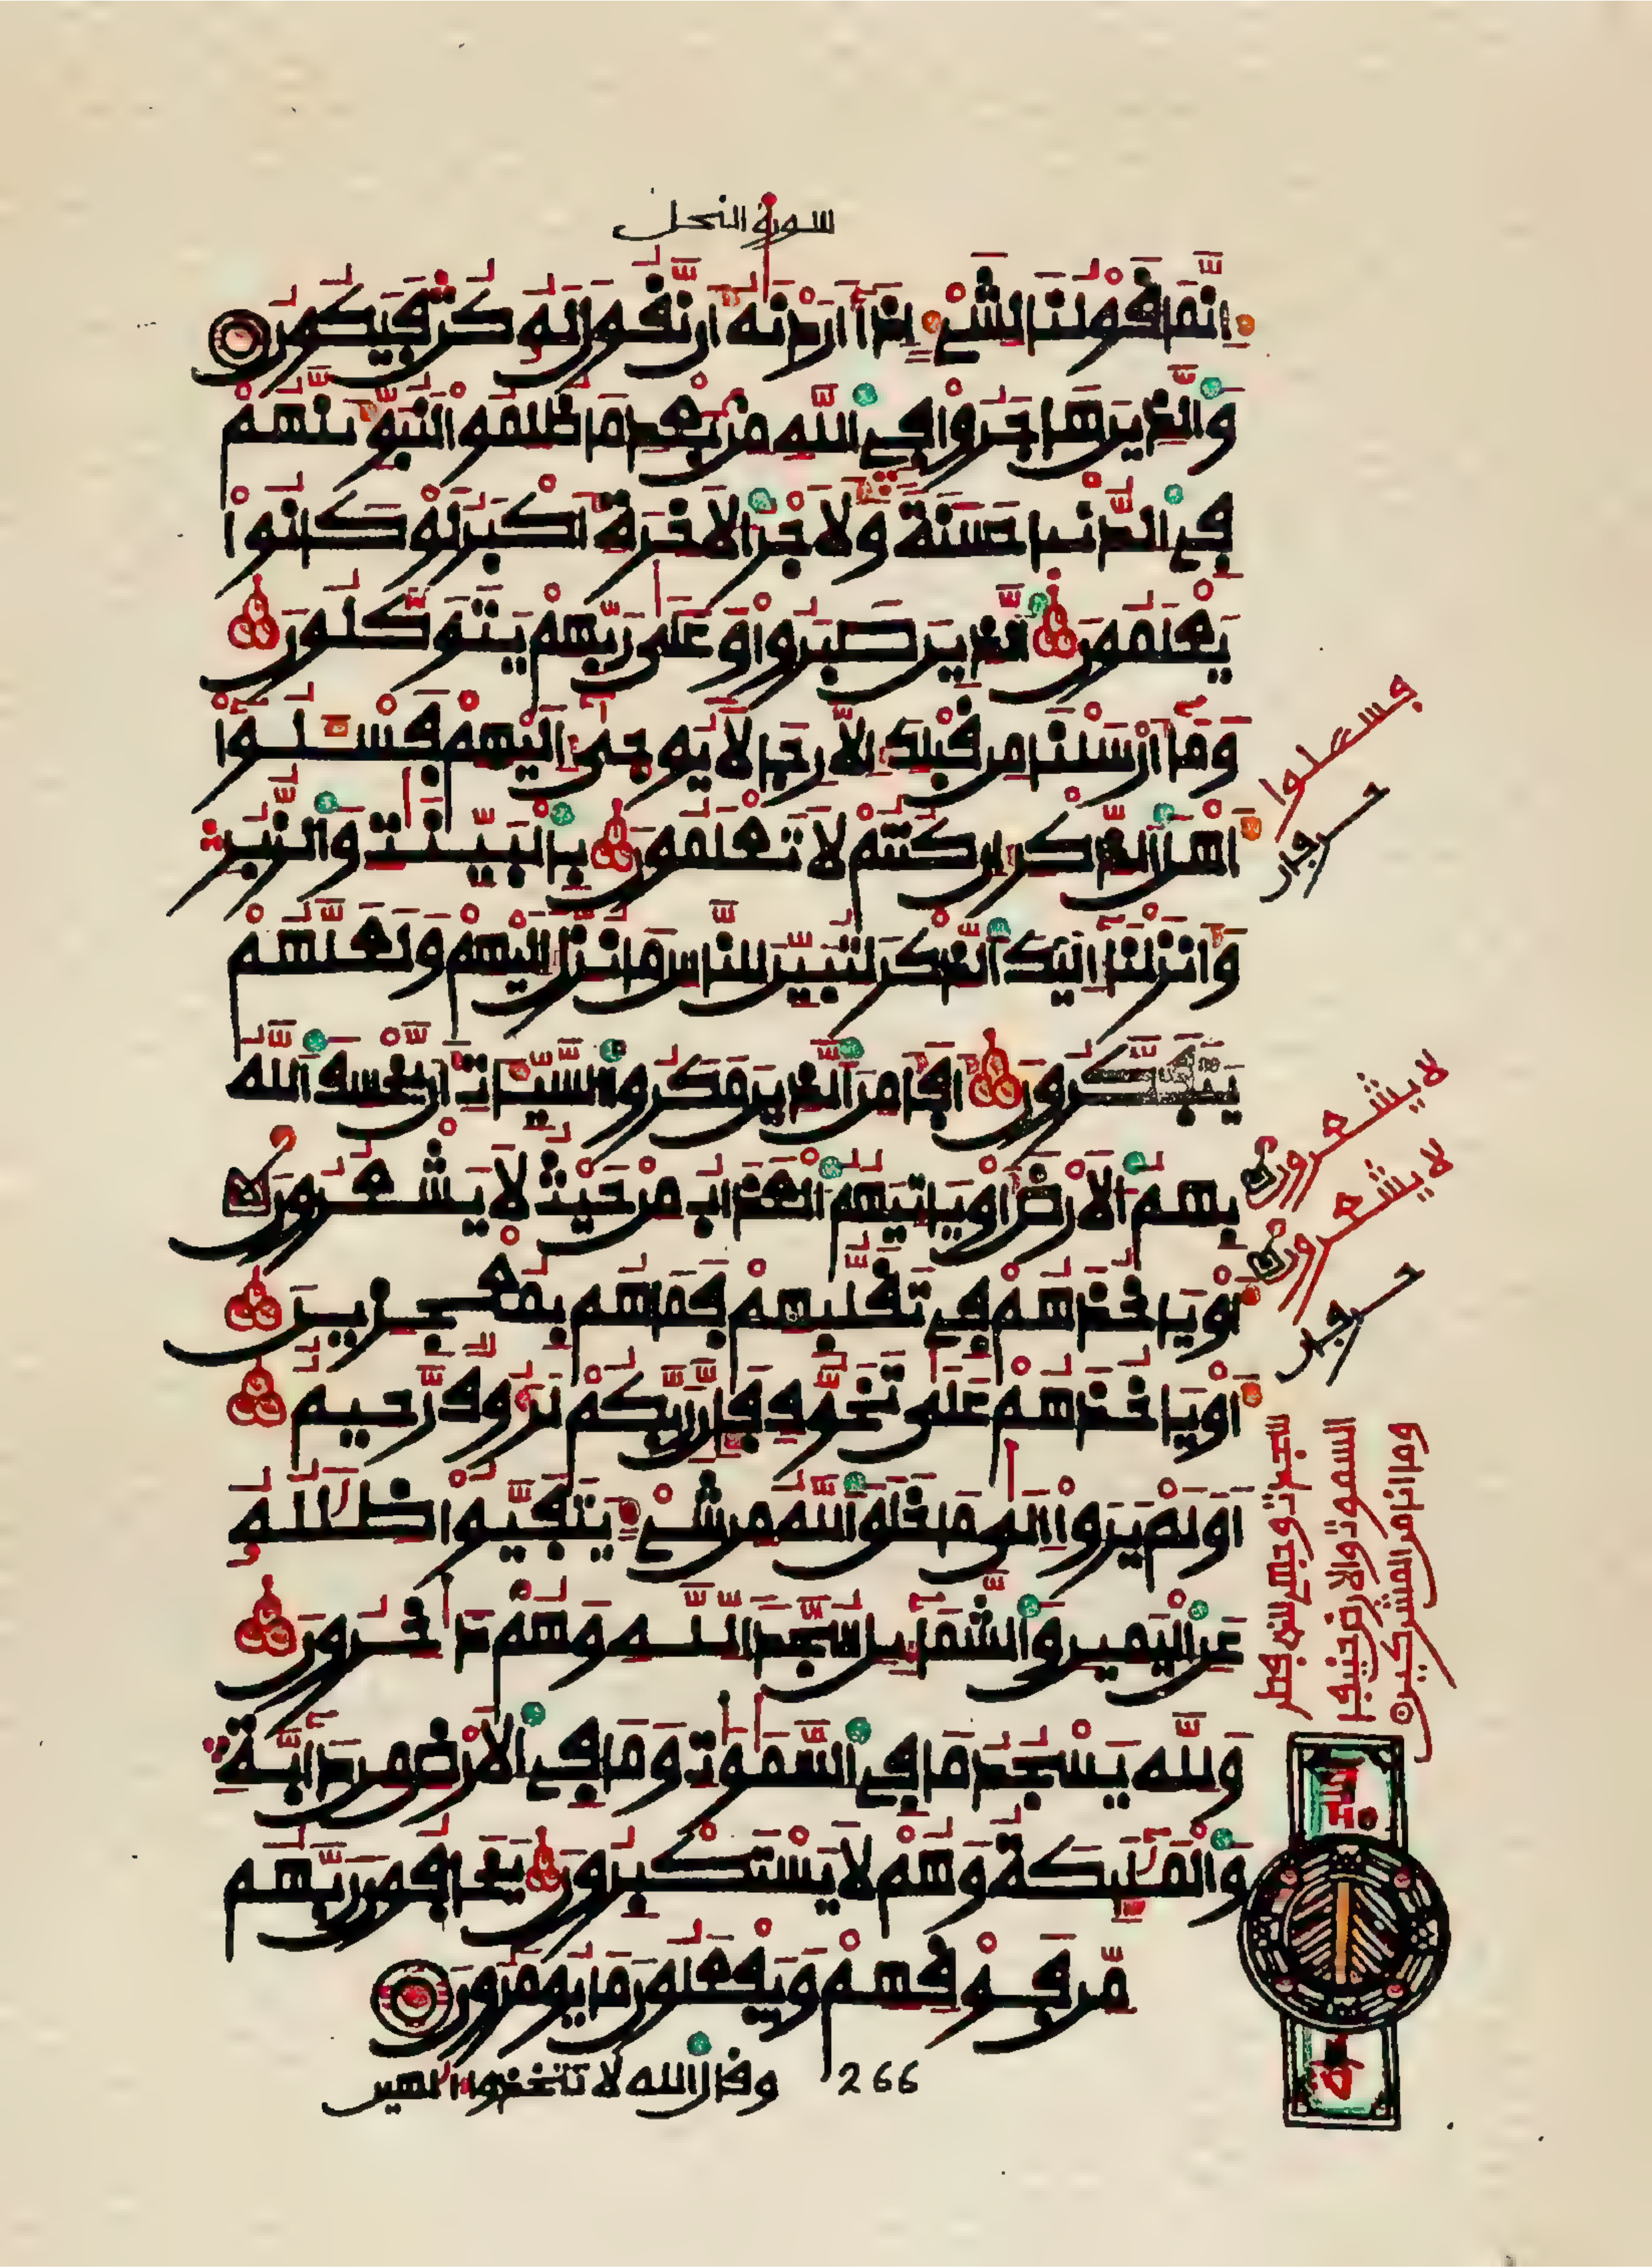 سورة النحل
إِنَّمَا قَوْلُنَا لِشَيْءٍ إِذَا أَرَدْنَٰهُ أَن نَّقُولَ لَهُ كُن فَيَكُونُ
وَالَّذِينَ هَاجَرُوا فِي اللَّهِ مِن بَعْدِ مَا ظُلِمُوا لَنُبَوِّئَنَّهُمْ
فِي الدُّنْيَا حَسَنَةً وَلَأَجْرُ الْآخِرَةِ أَكْبَرُ لَوْ كَانُوا
يَعْلَمُونَ الَّذِينَ صَبَرُوا وَعَلَىٰ رَبِّهِمْ يَتَوَكَّلُونَ
وَمَا أَرْسَلْنَا مِن قَبْلِكَ إِلَّا رِجَالًا يُوحَىٰ إِلَيْهِمْ فَسْـَٔلُوا
أَهْلَ الذِّكْرِ إِن كُنتُمْ لَا تَعْلَمُونَ بِالْبَيِّنَٰتِ وَالزُّبُرِ
وَأَنزَلْنَا إِلَيْكَ الذِّكْرَ لِتُبَيِّنَ لِلنَّاسِ مَا نُزِّلَ إِلَيْهِمْ وَلَعَلَّهُمْ
يَتَفَكَّرُونَ أَفَأَمِنَ الَّذِينَ مَكَرُوا السَّيِّـَٔاتِ أَن يَخْسِفَ اللَّهُ
بِهِمُ الْأَرْضَ أَوْ يَأْتِيَهُمُ الْعَذَابُ مِنْ حَيْثُ لَا يَشْعُرُونَ
أَوْ يَأْخُذَهُمْ فِي تَقَلُّبِهِمْ فَمَا هُم بِمُعْجِزِينَ
أَوْ يَأْخُذَهُمْ عَلَىٰ تَخَوُّفٍ فَإِنَّ رَبَّكُمْ لَرَءُوفٌ رَّحِيمٌ
أَوَلَمْ يَرَوْا إِلَىٰ مَا خَلَقَ اللَّهُ مِن شَيْءٍ يَتَفَيَّؤُا ظِلَٰلُهُ
عَنِ الْيَمِينِ وَالشَّمَائِلِ سُجَّدًا لِّلَّهِ وَهُمْ دَاخِرُونَ
وَلِلَّهِ يَسْجُدُ مَا فِي السَّمَٰوَٰتِ وَمَا فِي الْأَرْضِ مِن دَابَّةٍ
وَالْمَلَٰئِكَةُ وَهُمْ لَا يَسْتَكْبِرُونَ يَخَافُونَ رَبَّهُم
مِّن فَوْقِهِمْ وَيَفْعَلُونَ مَا يُومَرُونَ
266
وقال الله لا تتخذوا إلهين
فسـٔلوا
لا يشعرون
لا يشعرون
وجهت وجهي للذي فطر
السموت والارض حنيفا
وما انا من المشركين